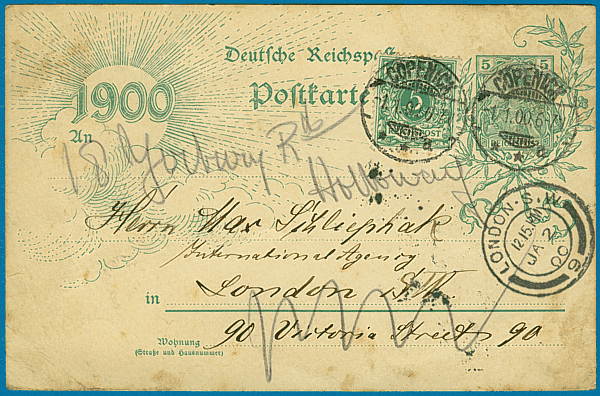 Deutsche Reichspost
1900
Postkarte
An
5
REICHSPOST
5 5
COPENICK
1.1.00.6-7
* a
COPENICK
1.1.00.6-7
* a
18 Yorbury Rd
Holloway
LONDON.S.W.
12.15
JA 2
00
Herrn Max Schliephak
International Agency
in London S.W.
90 Victoria Street 90
Wohnung
(Straße und Hausnummer)